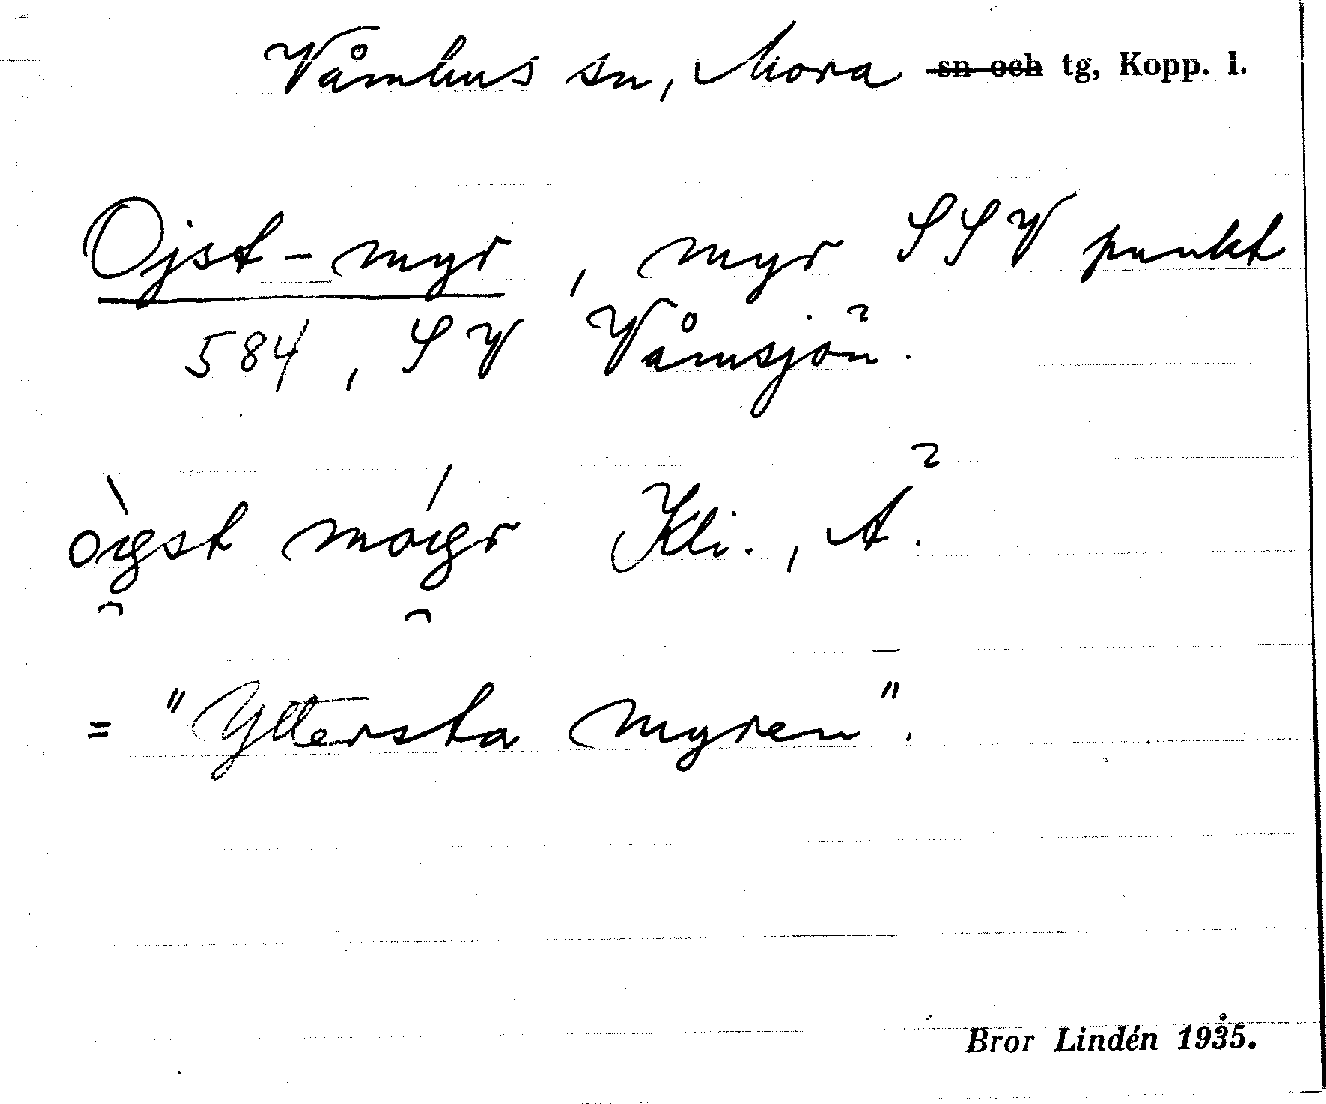 Våmhus sn, Mora ~~sn och~~ tg, Kopp. l.
Ojst-myr, myr SSV punkt
584, SV Våmsjön.
"Yttersta myren".
Bror Lindén 1935.